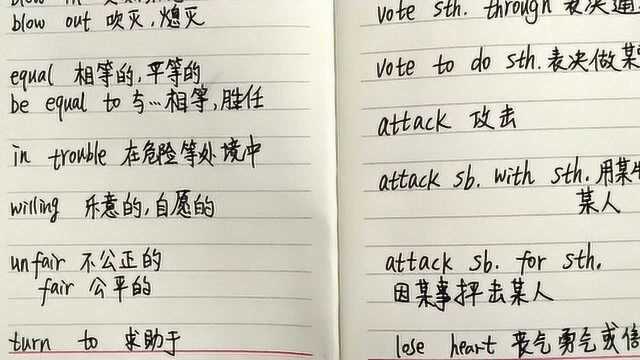 blow out 吹灭,熄灭
equal 相等的,平等的
be equal to 与…相等,胜任
in trouble 在危险等处境中
willing 乐意的,自愿的
unfair 不公正的
fair 公平的
turn to 求助于
vote sth. through 表决通
vote to do sth. 表决做某
attack 攻击
attack sb. with sth. 用某
某人
attack sb. for sth.
因某事抨击某人
lose heart 丧气勇气或信